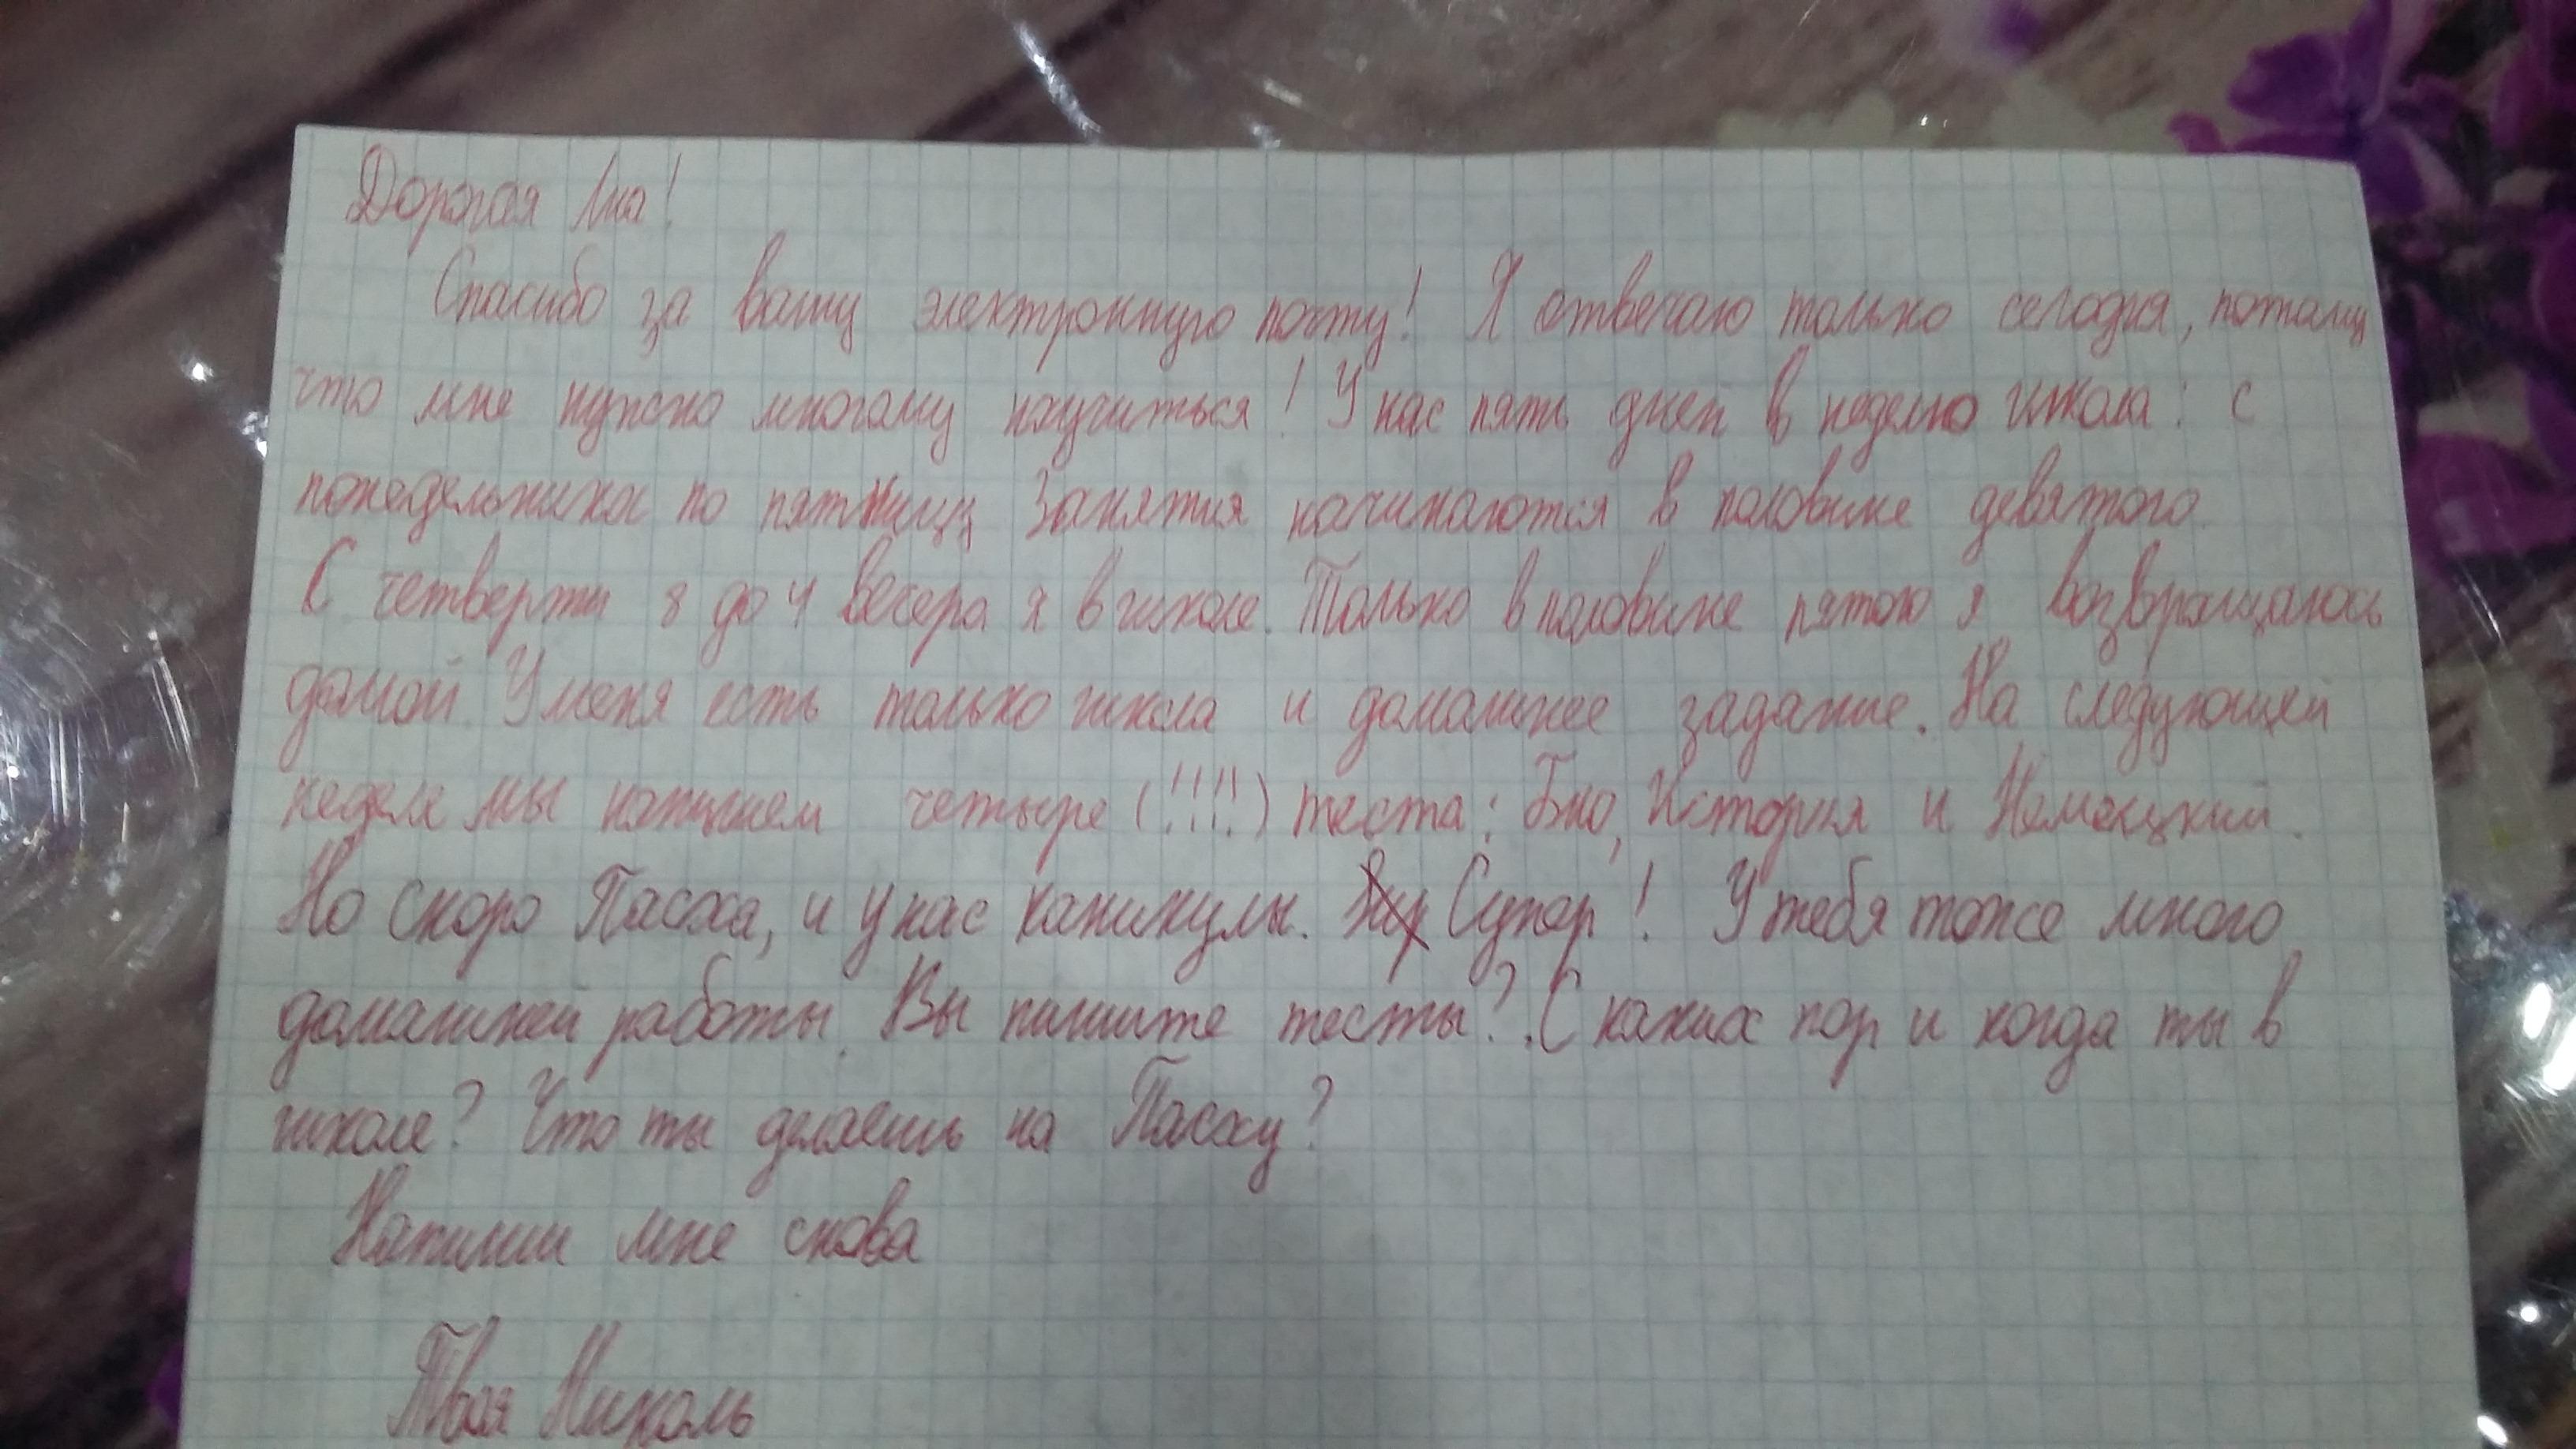 Дорогая Лиа!
Спасибо за вашу электронную почту! Я отвечаю только сегодня, потому
что мне нужно многому научиться! У нас пять дней в неделю школа: с
понедельника по пятницу Занятия начинаются в половине девятого.
С четверти 8 до 4 вечера я в школе. Только в половине пятого я возвращаюсь
домой. У меня есть только школа и домашнее задание. На следующей
неделе мы напишем четыре (!!!!) теста: Био, История и Немецкий.
Но скоро Пасха, и у нас каникулы. Супер! У тебя тоже много
домашней работы. Вы пишите тесты? С каких пор и когда ты в
школе? Что ты делаешь на Пасху?
Напиши мне снова
Твоя Николь